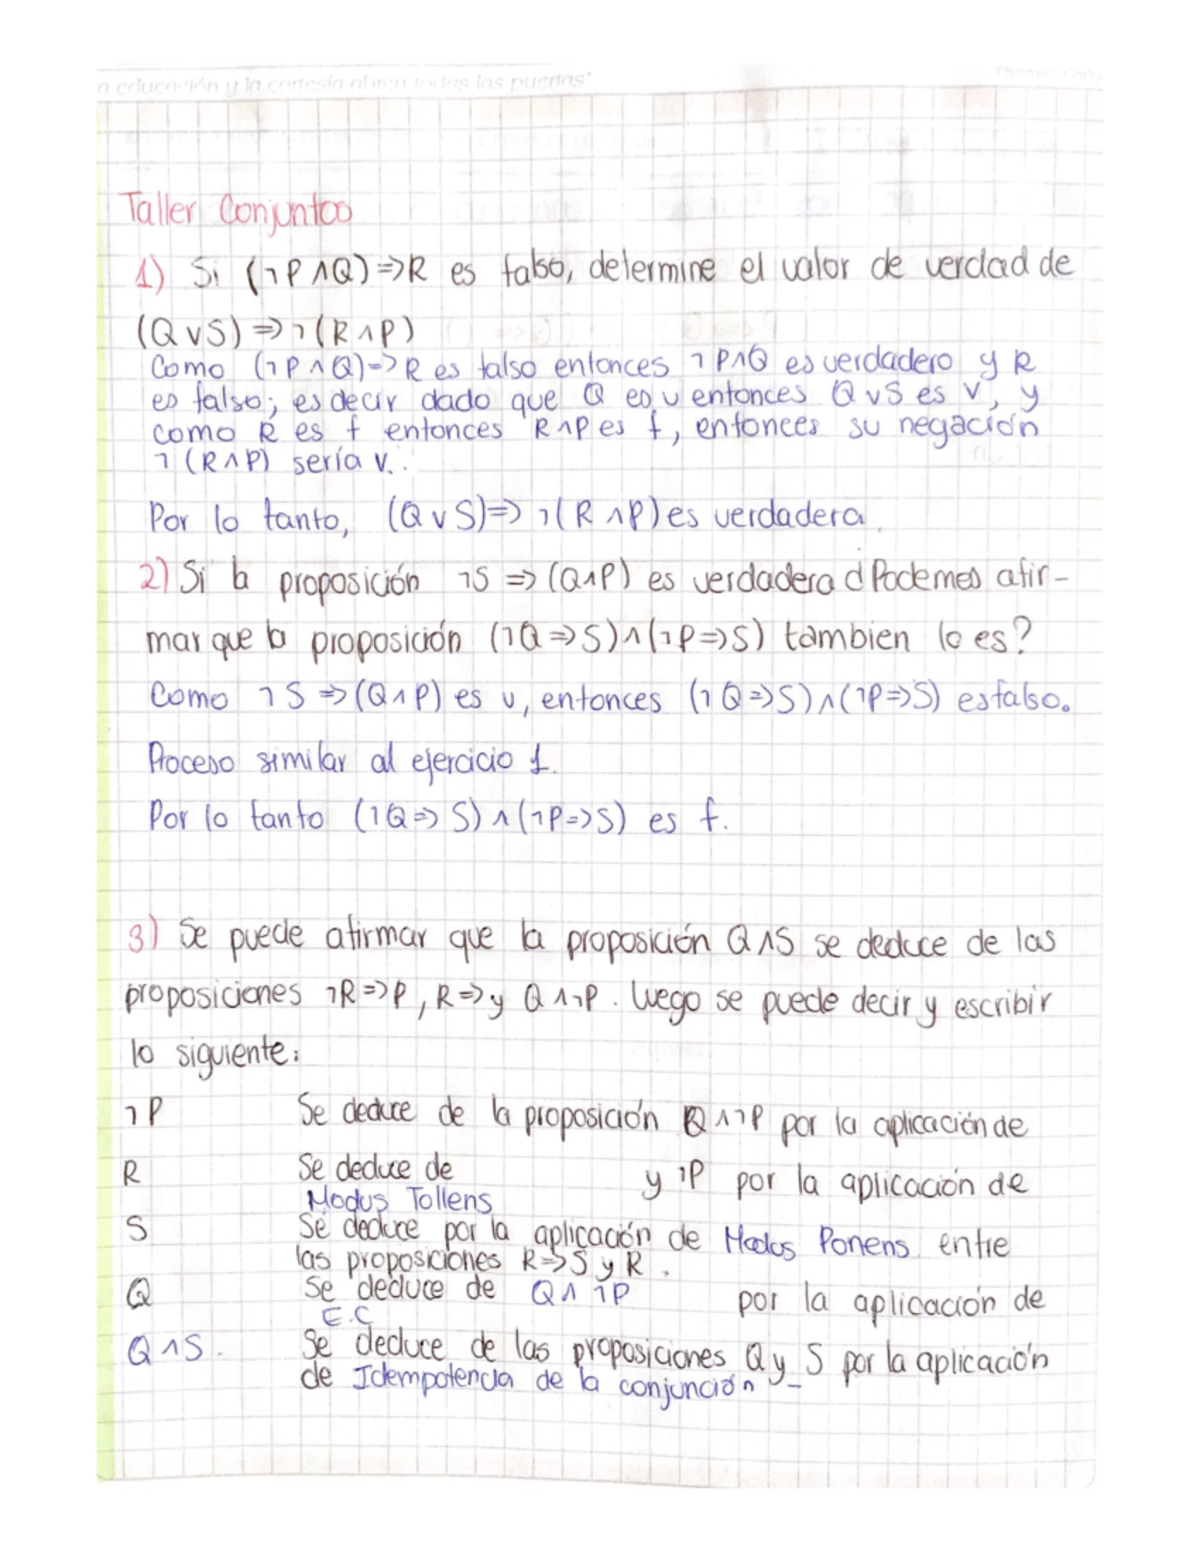 a educación y la cortesía abren todas las puertas"
Taller Conjuntos
1) Si (¬P∧Q)=>R es falso, determine el valor de verdad de
(Q∨S)=>¬(R∧P)
Como (¬P∧Q)=>R es falso entonces ¬P∧Q es verdadero y R
es falso; es decir dado que Q es v entonces Q∨S es V, y
como R es f entonces R∧P es f, entonces su negación
¬(R∧P) sería v.
Por lo tanto, (Q∨S)=>¬(R∧P) es verdadera.
2) Si la proposición ¬S=>(Q∧P) es verdadera ¿Podemos afir-
mar que la proposición (¬Q=>S)∧(¬P=>S) tambien lo es?
Como ¬S=>(Q∧P) es v, entonces (¬Q=>S)∧(¬P=>S) es falso.
Proceso similar al ejercicio 1.
Por lo tanto (¬Q=>S)∧(¬P=>S) es f.
3) Se puede afirmar que la proposición Q∧S se deduce de las
proposiciones ¬R=>P, R=>y Q∧¬P. Luego se puede decir y escribir
lo siguiente:
¬P Se deduce de la proposición Q∧¬P por la aplicación de
R Se deduce de y ¬P por la aplicación de
Modus Tollens
S Se deduce por la aplicación de Modus Ponens entre
las proposiciones R=>S y R.
Q Se deduce de Q∧¬P por la aplicación de
E.C
Q∧S. Se deduce de las proposiciones Q y S por la aplicación
de Idempotencia de la conjunción